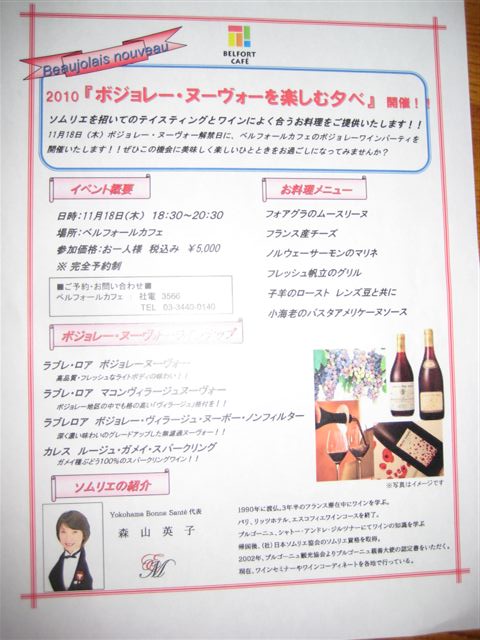 BELFORT
CAFÉ
Beaujolais nouveau
2010『ボジョレー・ヌーヴォーを楽しむ夕べ』 開催！！
ソムリエを招いてのテイスティングとワインによく合うお料理をご提供いたします！！
11月18日（木）ボジョレー・ヌーヴォー解禁日に、ベルフォールカフェのボジョレーワインパーティを
開催いたします！！ぜひこの機会に美味しく楽しいひとときをお過ごしになってみませんか？
イベント概要
日時：11月18日(木) 18：30～20：30
場所：ベルフォールカフェ
参加価格：お一人様 税込み ￥5,000
※ 完全予約制
■ご予約・お問い合わせ■
ベルフォールカフェ : 社電 3566
TEL 03-3440-0140
お料理メニュー
フォアグラのムースリーヌ
フランス産チーズ
ノルウェーサーモンのマリネ
フレッシュ帆立のグリル
子羊のロースト レンズ豆と共に
小海老のパスタアメリケーヌソース
ボジョレー・ヌーヴォーラインナップ
ラブレ・ロア ボジョレーヌーヴォー
高品質・フレッシュなライトボディの味わい！！
ラブレ・ロア マコンヴィラージュヌーヴォー
ボジョレー地区の中でも格の高い「ヴィラージュ」格付を！！
ラブレロア ボジョレー・ヴィラージュ・ヌーボー・ノンフィルター
深く濃い味わいのグレードアップした無濾過ヌーヴォー！！
カレス ルージュ・ガメイ・スパークリング
ガメイ種ぶどう100%のスパークリングワイン！！
※写真はイメージです
ソムリエの紹介
Yokohama Bonne Santé 代表
森 山 英 子
EM
1990年に渡仏、3年半のフランス滞在中にワインを学ぶ。
パリ、リッツホテル、エスコフィエワインコースを終了。
ブルゴーニュ、シャトー・アンドレ・ジルツナーにてワインの知識を学ぶ
帰国後、（社）日本ソムリエ協会のソムリエ資格を取得。
2002年、ブルゴーニュ観光協会よりブルゴーニュ親善大使の認定書をいただく。
現在、ワインセミナーやワインコーディネートを各地で行っている。